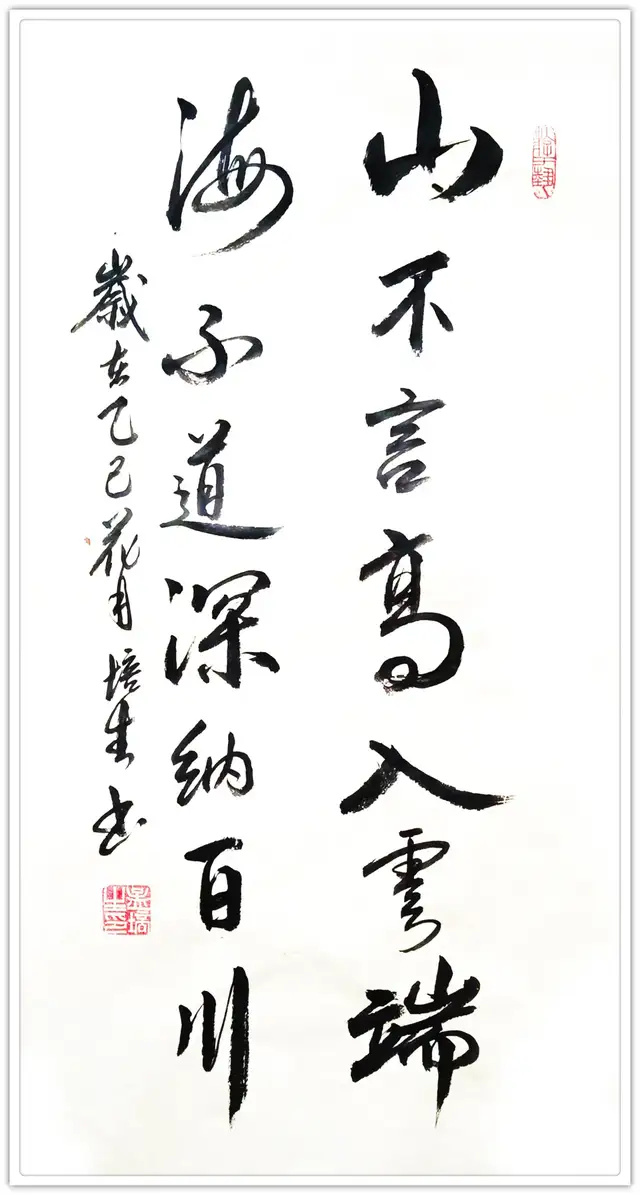 山不言高入雲端
海不道深纳百川
歲在乙巳花月培生书